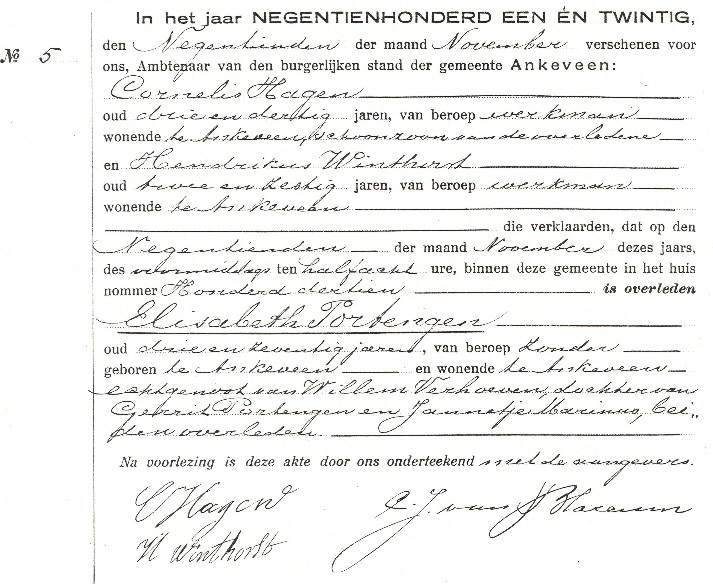 In het jaar NEGENTIENHONDERD EEN ÉN TWINTIG,
№ 5
den Negentienden der maand November verschenen voor
ons, Ambtenaar van den burgerlijken stand der gemeente Ankeveen:
Cornelis Hagen
oud drie en dertig jaren, van beroep werkman
wonende te Ankeveen, schoonzoon van de overledene
en Hendrikus Winthorst
oud twee en zestig jaren, van beroep werkman
wonende te Ankeveen
die verklaarden, dat op den
Negentienden der maand November dezes jaars,
des voormiddags ten half acht ure, binnen deze gemeente in het huis
nommer Honderd dertien is overleden
Elisabeth Portengen
oud drie en zeventig jaren, van beroep zonder
geboren te Ankeveen en wonende te Ankeveen
echtgenoot van Willem Verhoeven, dochter van
Gerrit Portengen en Jannetje Marinus, bei„
den overleden.
Na voorlezing is deze akte door ons onderteekend met de aangevers.
C Hagen
C. J. van
H Winthorst